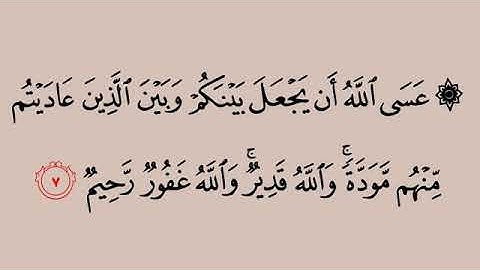 ۞ عَسَى ٱللَّهُ أَن يَجۡعَلَ بَيۡنَكُمۡ وَبَيۡنَ ٱلَّذِينَ عَادَيۡتُم
مِّنۡهُم مَّوَدَّةٗۚ وَٱللَّهُ قَدِيرٞۚ وَٱللَّهُ غَفُورٞ رَّحِيمٞ ٧